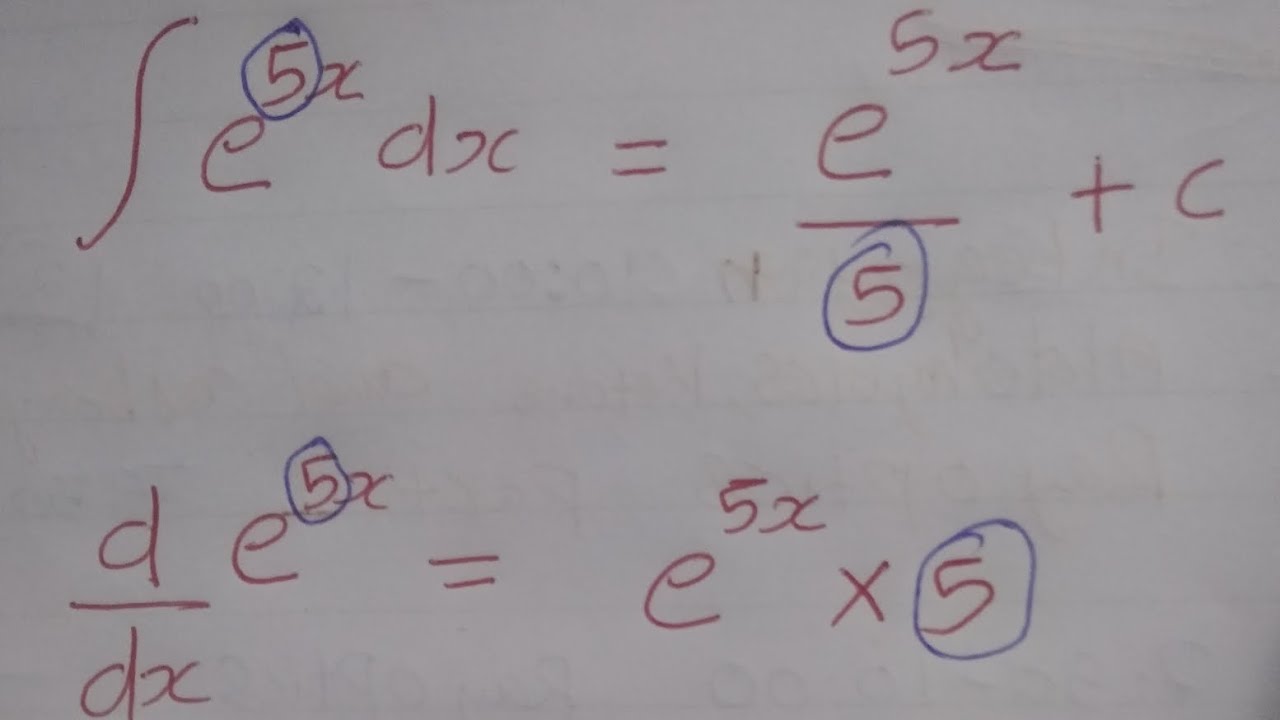 ∫ e^{5x} dx = \frac{e^{5x}}{5} + c
\frac{d}{dx} e^{5x} = e^{5x} × 5